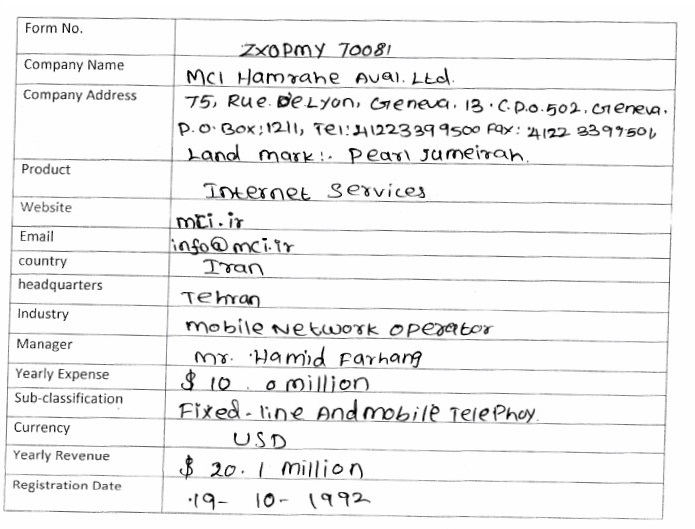 Form No.
ZXOPMY 70081
Company Name
MCI Hamrahe Aval. Ltd.
Company Address
75, Rue. De Lyon, Geneva. 13. C.P.O. 502. Geneva.
P.O. Box: 1211, Tel: 41223399500 Fax: 4122 3399501
Land mark:. Pearl Jumeirah.
Product
Internet Services
Website
mci.ir
Email
info@mci.ir
country
Iran
headquarters
Tehran
Industry
Mobile Network operator
Manager
Mr. Hamid Farhang
Yearly Expense
$ 10.0 million
Sub-classification
Fixed-line And mobile Telephoy.
Currency
USD
Yearly Revenue
$ 20.1 million
Registration Date
.19- 10- 1992